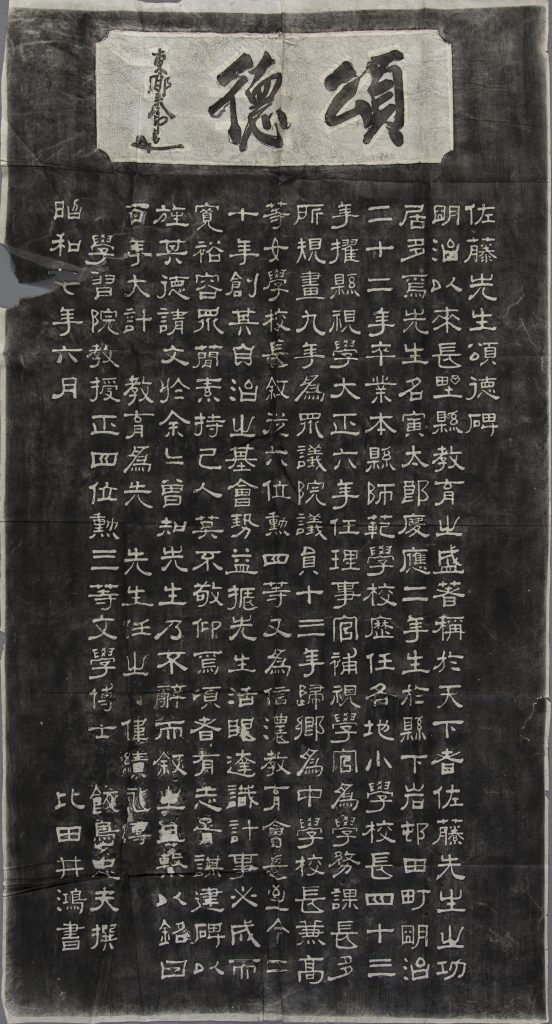 頌德
佐藤先生頌德碑
明治以來長野縣教育之盛著稱於天下者佐藤先生之功
居多焉先生名寅太郎慶應二年生於縣下岩邨田町明治
二十二年卒業本縣師範學校歷任各地小學校長四十三
年擢縣視學大正六年任理事官補視學官為學務課長多
所規畫九年為眾議院議員十三年歸鄉為中學校長兼高
等女學校長敘從六位勳四等又為信濃教育會長至今二
十年創其自治之基會勢益振先生活眼達識計事必成而
寬裕容眾簡素持己人莫不敬仰焉頃者有志胥謀建碑以
旌其德請文於余〻曾知先生乃不辭而敘之且繫以銘曰
百年大計 教育為先 先生任之 偉績永傳
學習院教授正四位勳三等文學博士 飯島忠夫撰
昭和七年六月 比田井鴻書